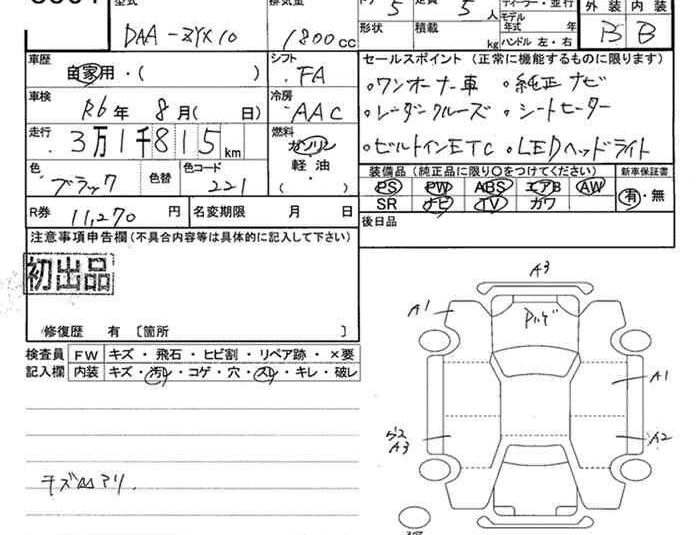 型式 排気量 ドア 5 定員 5人 ディーラー・並行 外装 内装
DAA-ZYX10 1800cc 形状 積載 kg モデル年式 年 ハンドル 左・右 B B
車歴 自家用・( ) シフト FA セールスポイント (正常に機能するものに限ります)
・ワンオーナー車 ・純正ナビ
車検 R6年 8月( 日) 冷房 AAC ・レーダークルーズ ・シートヒーター
走行 3万1千815km 燃料 ガソリン 軽油 ( ) ・ビルトインETC ・LEDヘッドライト
色 ブラック 色替 色コード 221 装備品 (純正品に限り○をつけてください) 新車保証書
PS PW ABS エアB AW 有・無
SR ナビ TV カワ
R券 11,270円 名変期限 月 日 後日品
注意事項申告欄 (不具合内容等は具体的に記入して下さい)
初出品
修復歴 有 〔箇所 〕
検査員記入欄 FW キズ・飛石・ヒビ割・リペア跡・×要
内装 キズ・汚レ・コゲ・穴・スレ・キレ・破レ
A3
A1
A1
A3
A2
キズ アリ.